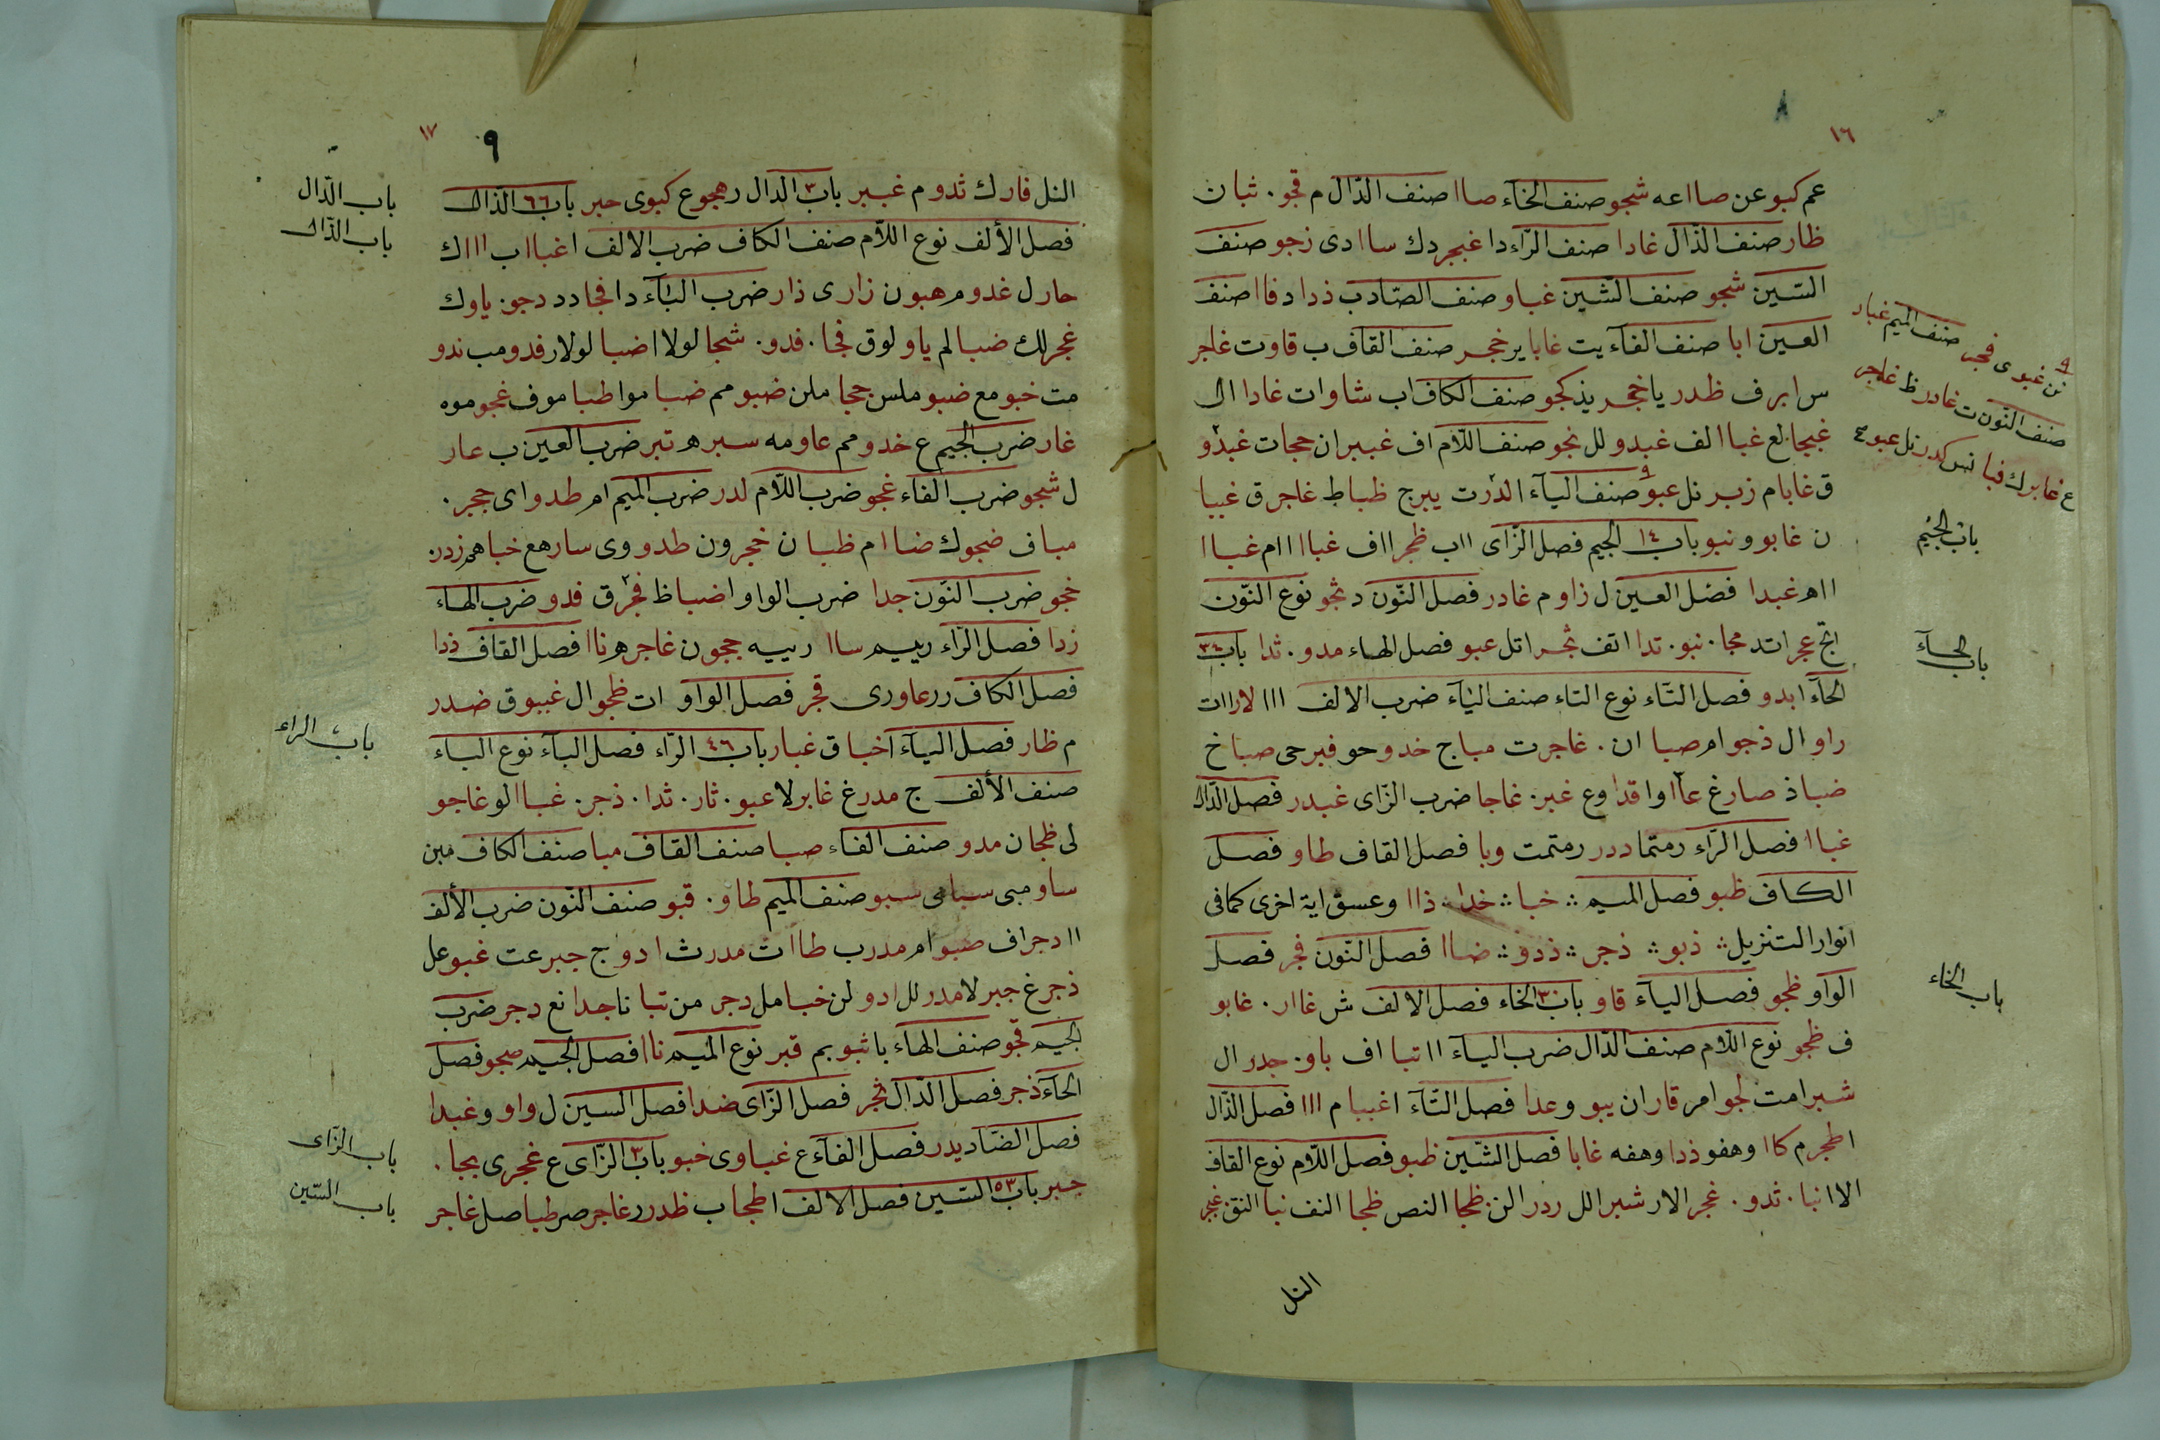 ١٦
٨
عم كبو عن صاا عه شجو صنف الخآء صاا صنف الدّال م قجو. ثبا ن
ظار صنف الذّال غادا صنف الرّاء دا غبجر دك ساا دى زجو صنف
السّين شجو صنف الشّين غباو صنف الصّاد ب ذدا د فاا صنف
العين ابا صنف الفآء يت غابا ير خجر صنف القاف ب قاوت غاجر
س ابر ف ظدر يا خجر يذ كجو صنف الكاف اب شاوات غادا ال
غبجا لع غباا لف غبدو لل نجو صنف اللّام اف غبيران حجات غبدو
ق غابا م زبر نل عبو صنف اليآء الدرت يبرج ظباط غاجر ق غبيا
ن غابو و نبو باب ١٤ الجيم فصل الزّاى ااب ظجر ااف غباا اام غباا
ااه غبدا فصل العين ل زاوم غادر فصل النّون د ثجو نوع النّون
اتج عجر اتد مجا. نبو. تدا اتف ثجر اتل عبو فصل الهاء مدو. ثدا باب ٣٤
الحآء ابدو فصل التّاء نوع التاء صنف اليآء ضرب الالف ااا لاراات
راوال ذجوام صبا ان. غاجرت مباج خدوحو فبرحى صباخ
ضباذ صارغ عآاوا قداوع غبز. غاجا ضرب الزّاى غبدر فصل الدّال
غباا فصل الرّاء رمتما ددر رمتمت وبا فصل القاف طاو فصل
الكاف ظبو فصل الميم ∴ خبا ∴ خدا ∴ ذاا وعسق اية اخرى كما فى
انوار التنزيل ∴ ذبو ∴ ذجر ∴ ذدو ∴ ضاا فصل النّون فجر فصل
الواو ظجو فصل اليآء قاو باب ٣٠ الخاء فصل الالف ش غاار. غابو
ف ظجو نوع اللّام صنف الدّال ضرب اليآء اا تبا اف باو. جدر ال
شبرامت لجوامر قاران يبو وعدا فصل التّآء اغببا م ااا فصل الذّال
اطجر م كاا وهفو ذدا وهفه غابا فصل الشّين ظبو فصل اللّام نوع القاف
الا انبا. ثدو. غجر الار شبر الل ردر الن ظجا النص ظجا النف نبا النق غجر
النل
صنف الميم غباد
نن غبد ى فجر
صنف النّون ت غادر ظ غاجر
ع غابر ك فبا نس كدر نل عبو
باب الجيم
باب الحآء
باب الخاء
١٧
٩
النل فارك ثدوم غبر باب ٣ الدّال رهجوع كبوى حبر باب ٦٦ الذّال
فصل الألف نوع اللّام صنف الكاف ضرب الالف اغباا ب اااك
حار ل غدوم هبون زارى ذار ضرب البآء دا فجا دد دجو. ياوك
غجر لك ضبا لم ياو لوق فجا. فدو. شجا لولا اضبا لولار فدو مب ندو
مت خبو مع ضبو ملس حجا ملن ضبو مم ضبا موا طبا موف غجو موه
غار ضرب الجيم ع خدو مم عاو مه سبر ه تبر ضرب العين ب عار
ل شجو ضرب الفاء غجو ضرب اللّام لدر ضرب الميم ام طدو اى حجر.
مباف ضجوك ضاا م ظبا ن خجرون طدو وى سارهع خباهم زدر.
خجو ضرب النّون جدا ضرب الواو اضبا ظ فجر ق فدو ضرب الهاء
زدا فصل الرّاء ربيم ساا ربيه حجون غاجر هرناا فصل القاف ذدا
فصل الكاف رر عاورى قجر فصل الواو ات ظجو ال غبيوق ضدر
م ظار فصل اليآء اخباق غبار باب ٤٦ الرّاء فصل البآء نوع الباء
صنف الألف ج مدرغ غابرلا عبو. ثار. ثدا. ذجر. غباا لو غاجو
لى ظجان مدو صنف الفاء صبا صنف القاف مبا صنف الكاف مبن
ساومبى سبا مى سبو صنف الميم طاو. قبو صنف النّون ضرب الألف
اا دجراف صبوام مدرب طاا ث مدرث ادوج جبرعت غبوعل
ذجرغ جبرلا مدر لل ادو لن خبا مل دجر من تبا نا جدا نع دجر ضرب
الجيم قجو صنف الهاء با ثبو بم قبر نوع الميم ناا فصل الجيم صجو فصل
الحآء ذجر فصل الدّال ثجر فصل الزّاى ضدا فصل السين ل واو و غبدا
فصل الضّاد يدر فصل الفآء ع غباوى خبو باب ٣ الزّاى ع غجرى بجا.
جبر باب ٥٣ السّين فصل الالف اطجا ب ظدر ر غاجر صر طبا صل غاجر
باب الدّال
باب الذّال
باب الراء
باب الزّاى
باب السّين